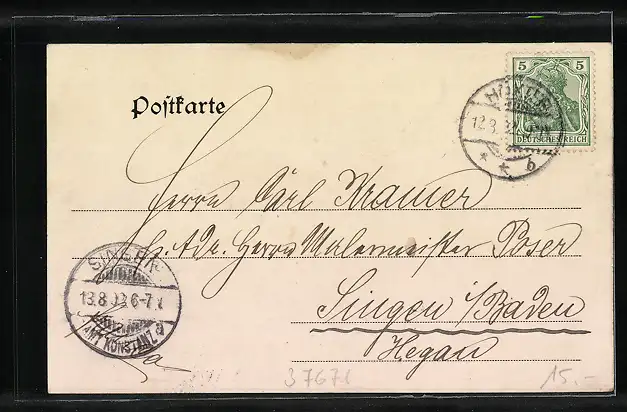 Postkarte
5 5
DEUTSCHES REICH
HÖXTER
12.8.02
* * b
Herrn Carl Kramer
p. Adr. Herrn Malermeister Poser
Singen i/Baden
Hegau
SINGEN
13.8.02 6-7
AMT KONSTANZ
37671
15.-